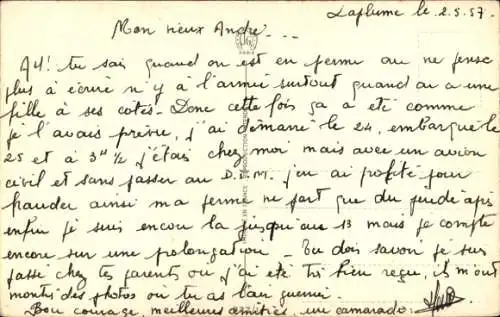 Laplume le 2.5.57.
Mon vieux André...
Ah! tu sais quand on est en perme on ne pense
plus à écrire n'y à l'armée surtout quand on a une
fille à ses cotés. Donc cette fois ça a été comme
je l'avais prévu, j'ai démarré le 24, embarqué le
25 et à 3H 1/2 j'étais chez moi mais avec un avion
civil et sans passer au D.I.M. j'en ai profité pour
ainsi ma perme ne part que du jeudi après
enfin je suis encore là jusqu'au 13 mais je compte
encore sur une prolongation - Tu dois savoir je suis
passé chez tes parents où j'ai été très bien reçu, ils m'ont
montrés des photos où tu as l'air guerrier.
Bon courage, meilleures amitiés, un camarade: